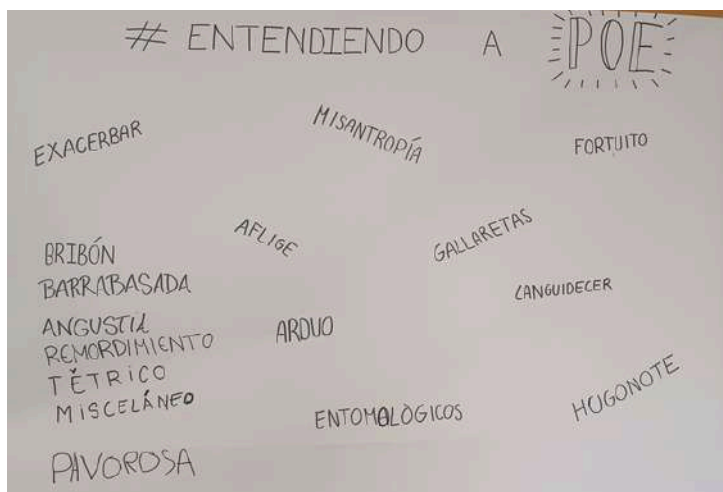 # ENTENDIENDO A POE
EXACERBAR
MISANTROPÍA
FORTUITO
AFLIGE
GALLARETAS
BRIBÓN
BARRABASADA
LANGUIDECER
ANGUSTIA
ARDUO
REMORDIMIENTO
TÉTRICO
MISCELÁNEO
HUGONOTE
ENTOMOLÒGICOS
PAVOROSA